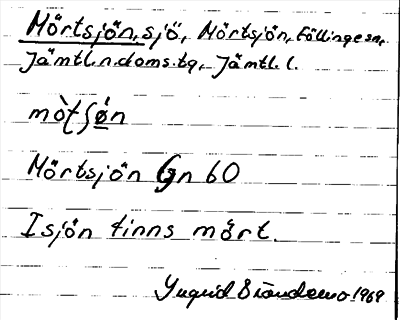 Mörtsjön, sjö, Mörtsjön, Föllinge sn,
Jämtl. n. doms. tg, Jämtl. l.
Mörtsjön Gn 60
I sjön finns mört.
Yngrid Brändemo 1969